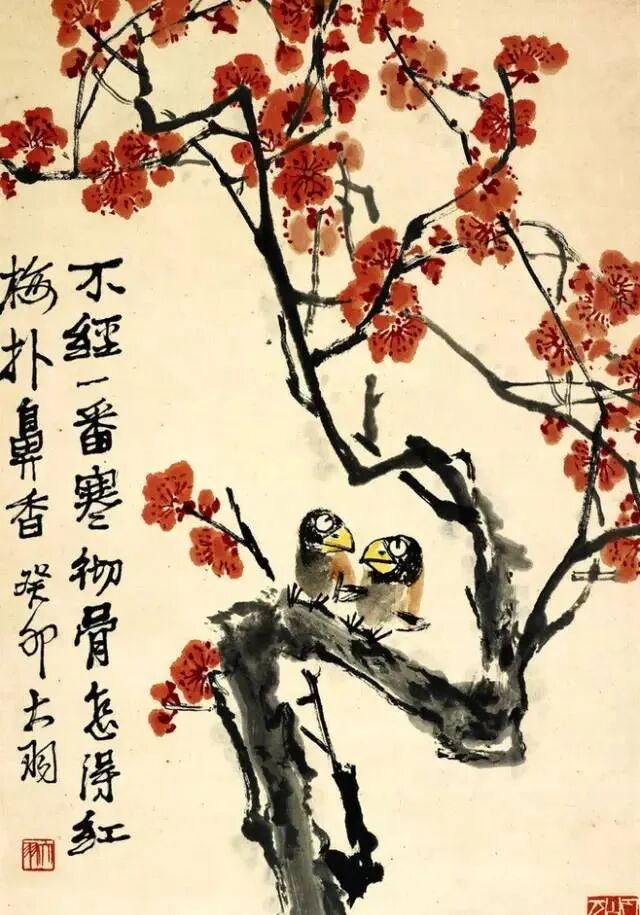 不經一番寒彻骨怎得红
梅扑鼻香 癸卯大羽